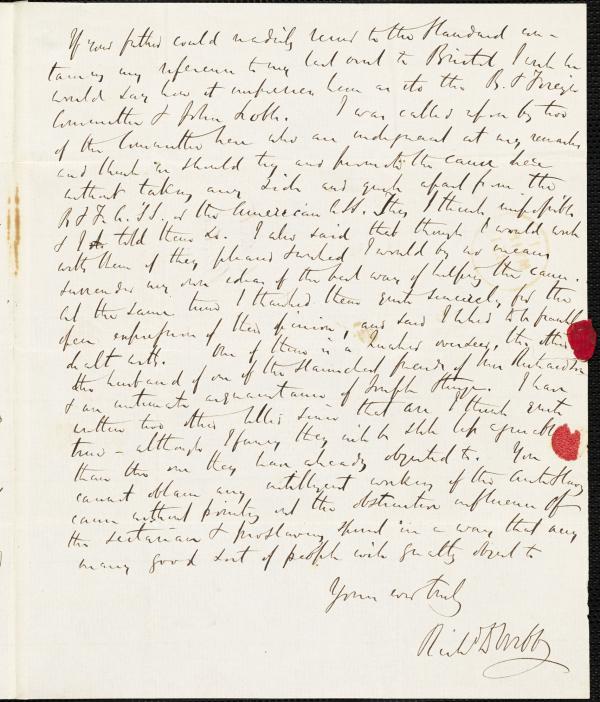 If your father could readily send to the Standard con-
taining my reference to my last visit to Bristol, I wish he
would say how it impresses him as to the B. & Foreign
Committee & John Scoble. I was called upon by two
of the Committee here who are indignant at my remarks
and think we should try and promote the cause here
without taking any side and quite apart from the
B & F. A. SS. or the American ASS. This I think impossible
& I told them so. I also said that though I would work
with them if they pleased I would by no means
surrender my own ideas of the best way of helping the cause.
At the same time I thanked them quite sincerely for the
open expression of their opinion, and said I liked to be frankly
dealt with. One of them is a Quaker overseer, the other
the husband of one of the staunchest friends of Mrs Richardson
& an intimate acquaintance of Joseph Sturge. I have
written two other letters since that are I think quite
true - although I fancy they will be still less agreeable
than the one they have already objected to. You
cannot obtain any intelligent working of the Anti Slavery
cause without pointing out the obstructive influence of
the sectarian & proslavery spirit in a way that any
many good sort of people will greatly object to
Yours ever truly
Richd D Webb